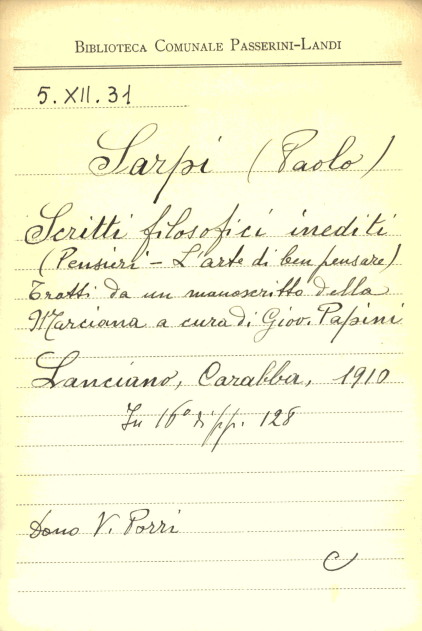 BIBLIOTECA COMUNALE PASSERINI-LANDI
5. XII. 31
Sarpi (Paolo)
Scritti filosofici inediti
(Pensieri - L'arte di ben pensare)
Tratti da un manoscritto della
Marciana a cura di Giov. Papini
Lanciano, Carabba, 1910
In 16° di pp. 128
Dono V. Porri
C